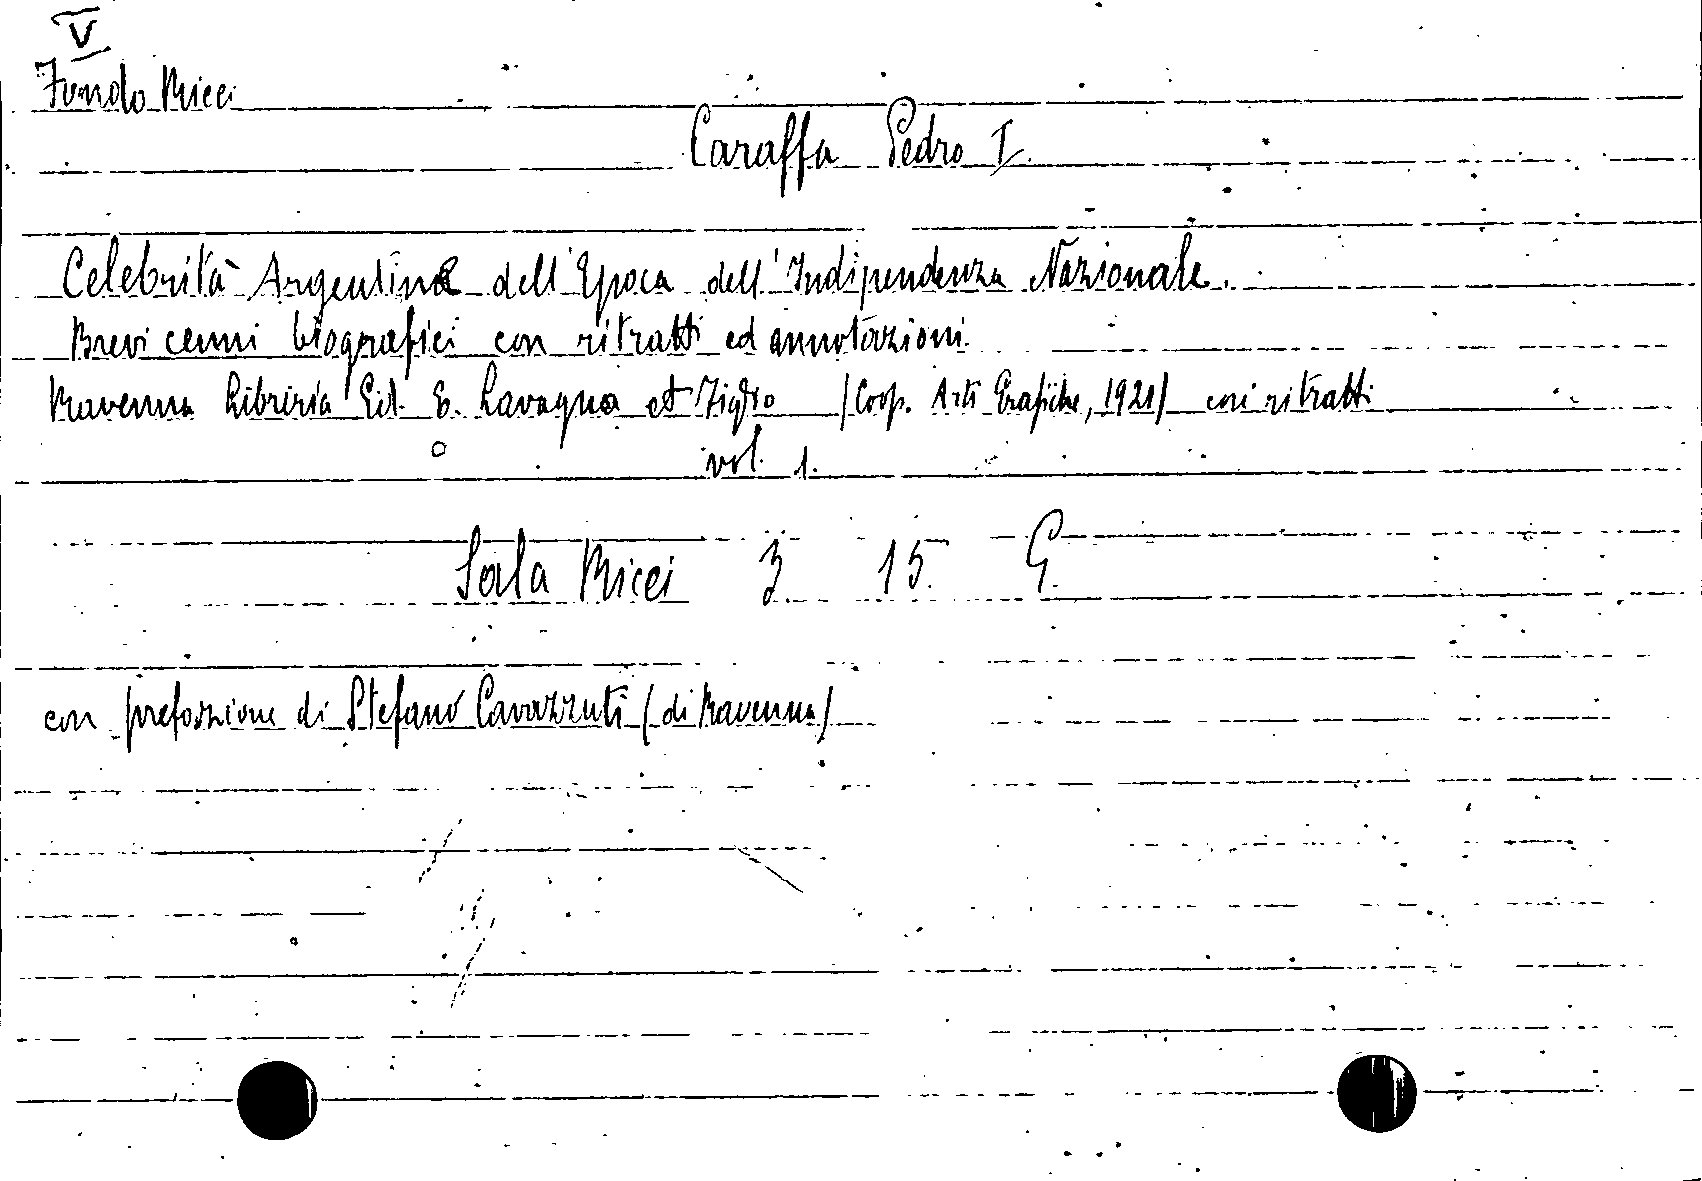 V
Fondo Ricci
Caraffa Pedro I.
Celebrità Argentine dell'Epoca dell'Indipendenza Nazionale.
Brevi cenni biografici con ritratti ed annotazioni.
Ravenna Libreria Ed. E. Lavagna et Figlio (Coop. Arti Grafiche, 1921) con ritratti
vol. 1.
Sala Ricci 3. 15. G.
con prefazione di Stefano Cavazzuti (di Ravenna)